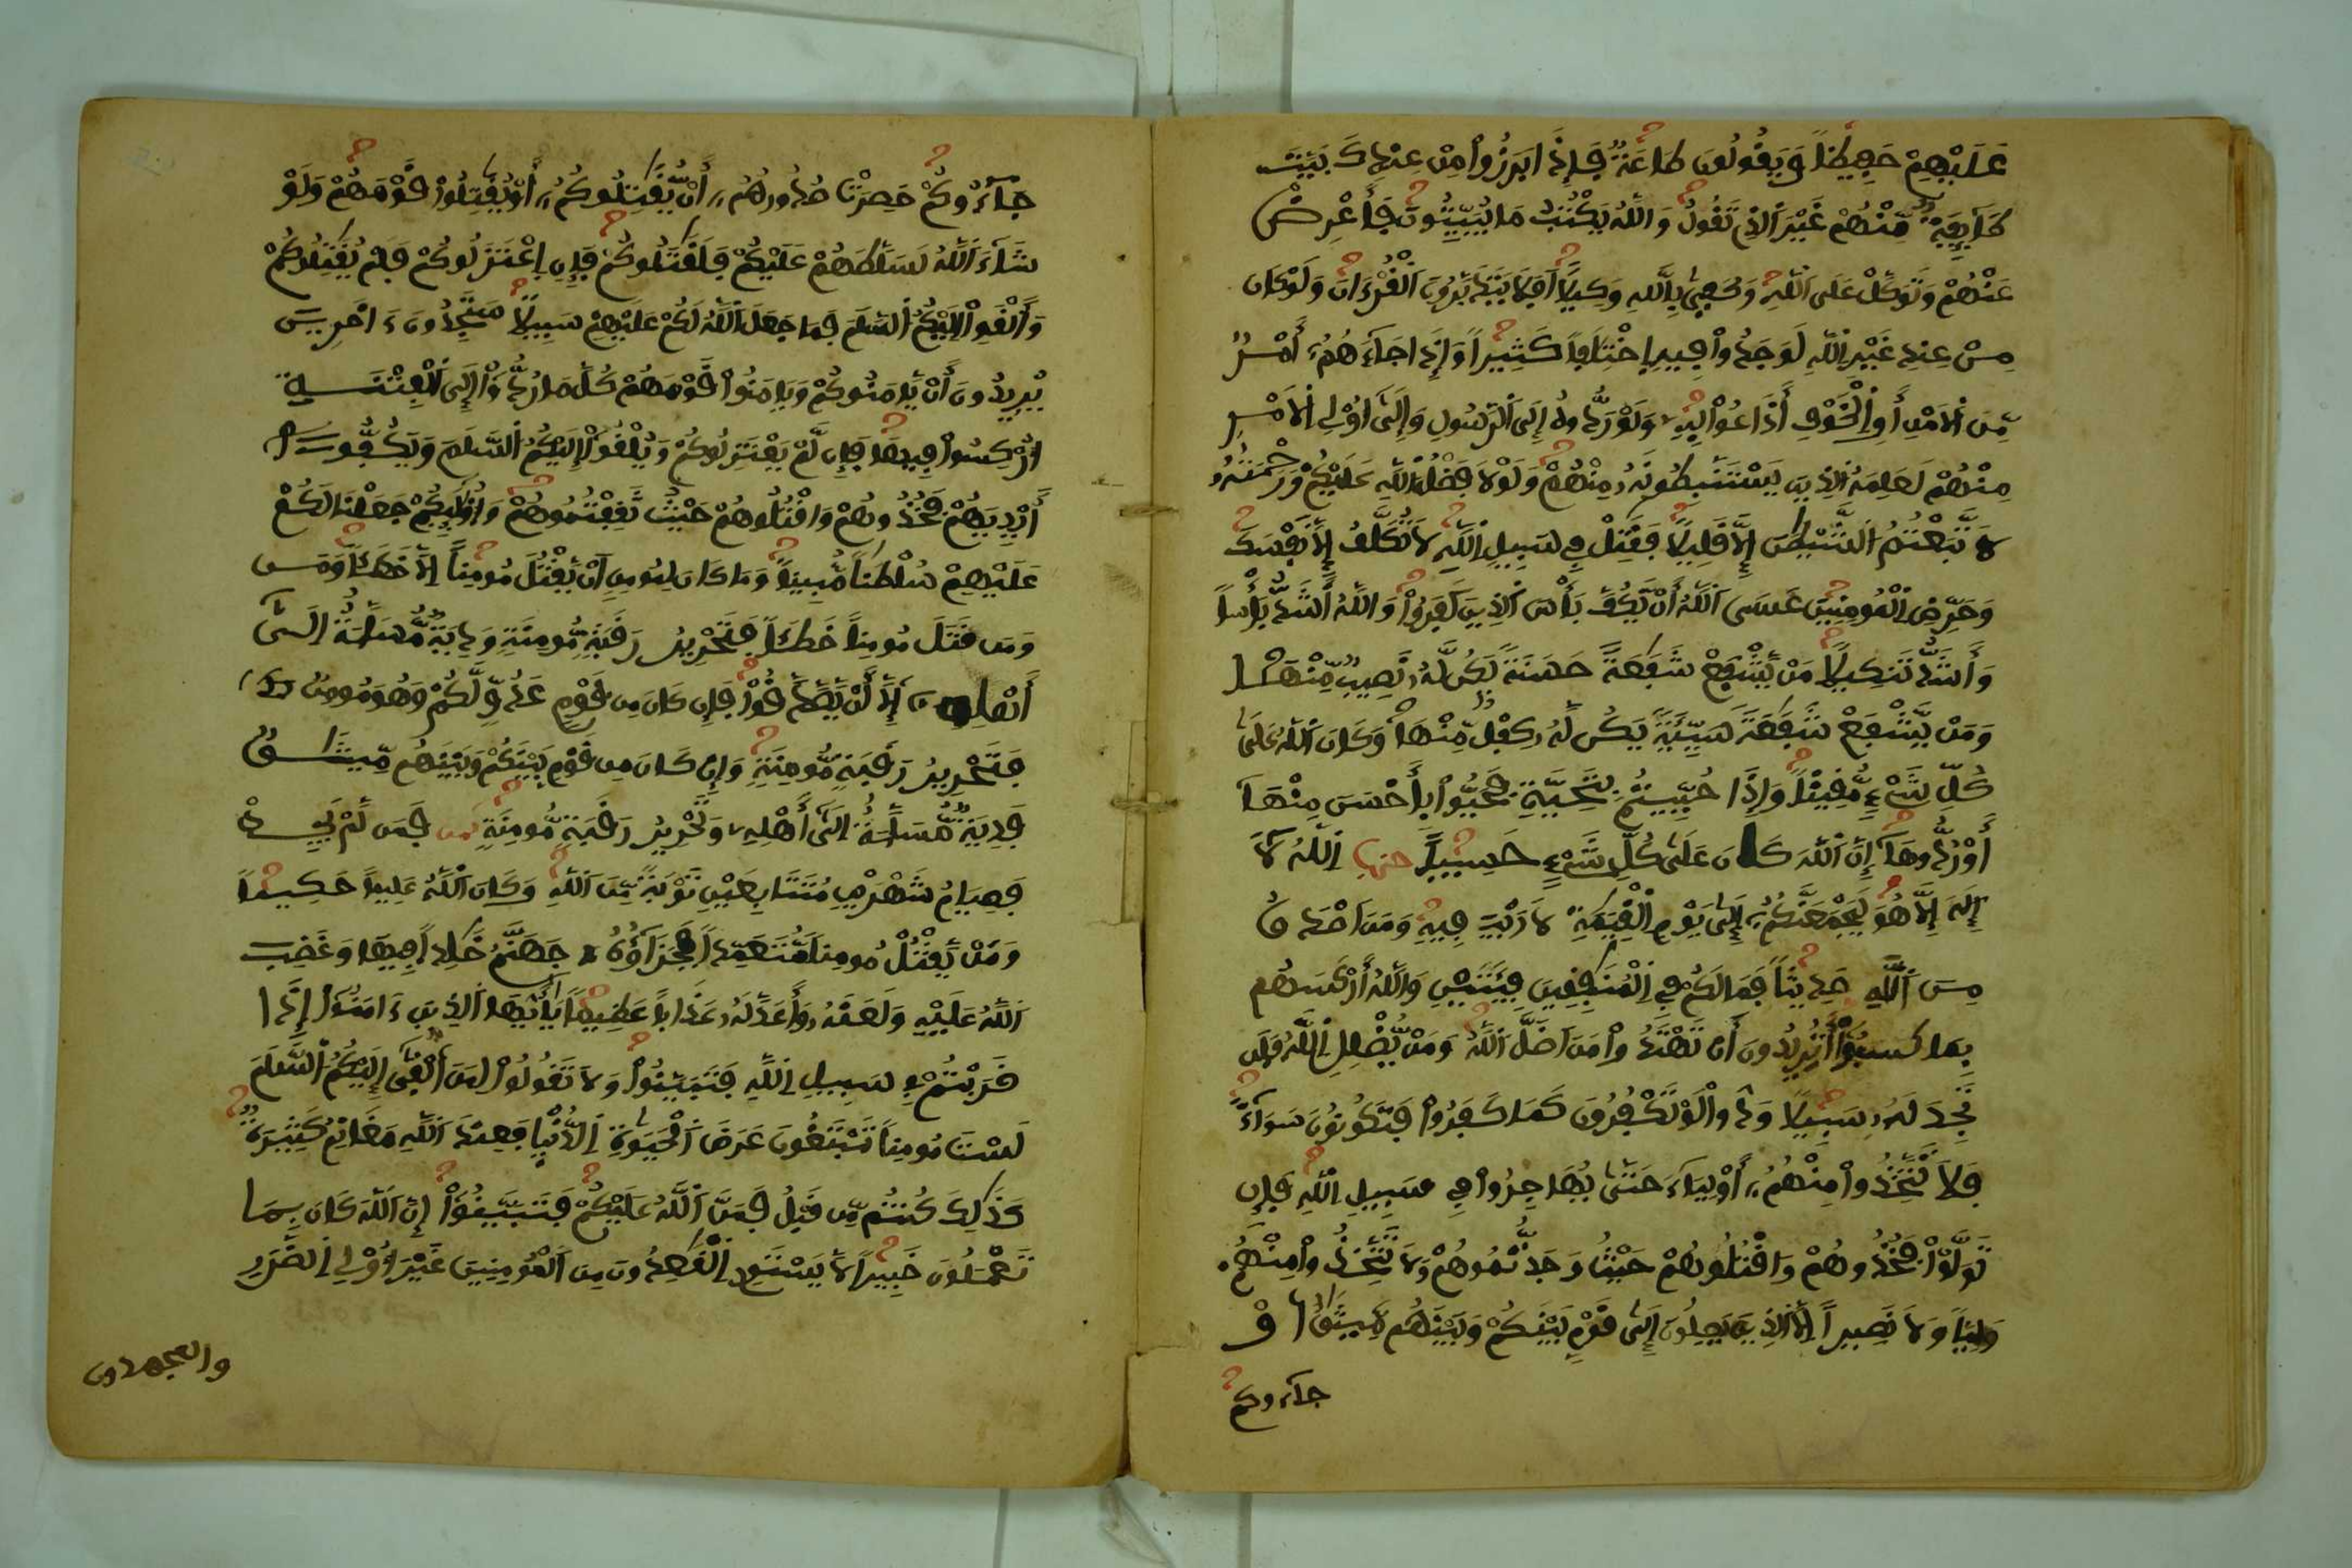 عَلَيْهِمْ حَفِيظًا وَيَقُولُونَ طَاعَةٌ فَإِذَا بَرَزُوا مِنْ عِندِكَ بَيَّتَ
طَآئِفَةٌ مِّنْهُمْ غَيْرَ الَّذِي تَقُولُ وَاللَّهُ يَكْتُبُ مَا يُبَيِّتُونَ فَأَعْرِضْ
عَنْهُمْ وَتَوَكَّلْ عَلَى اللَّهِ وَكَفَىٰ بِاللَّهِ وَكِيلًا أَفَلَا يَتَدَبَّرُونَ الْقُرْءَانَ وَلَوْ كَانَ
مِنْ عِندِ غَيْرِ اللَّهِ لَوَجَدُوا فِيهِ اخْتِلَٰفًا كَثِيرًا وَإِذَا جَآءَهُمُۥ أَمْرٌ
مِّنَ الْأَمْنِ أَوِ الْخَوْفِ أَذَاعُوا بِهِۦ وَلَوْ رَدُّوهُ إِلَى الرَّسُولِ وَإِلَىٰ أُوْلِي الْأَمْرِ
مِنْهُمْ لَعَلِمَهُ الَّذِينَ يَسْتَنبِطُونَهُۥ مِنْهُمْ وَلَوْلَا فَضْلُ اللَّهِ عَلَيْكُمْ وَرَحْمَتُهُۥ
لَاتَّبَعْتُمُ الشَّيْطَٰنَ إِلَّا قَلِيلًا فَقَٰتِلْ فِي سَبِيلِ اللَّهِ لَا تُكَلَّفُ إِلَّا نَفْسَكَ
وَحَرِّضِ الْمُومِنِينَ عَسَى اللَّهُ أَنْ يَّكُفَّ بَأْسَ الَّذِينَ كَفَرُوا وَاللَّهُ أَشَدُّ بَأْسًا
وَأَشَدُّ تَنكِيلًا مَنْ يَّشْفَعْ شَفَٰعَةً حَسَنَةً يَكُن لَّهُۥ نَصِيبٌ مِّنْهَا
وَمَنْ يَّشْفَعْ شَفَٰعَةً سَيِّئَةً يَكُن لَّهُۥ كِفْلٌ مِّنْهَا وَكَانَ اللَّهُ عَلَىٰ
كُلِّ شَيْءٍ مُّقِيتًا وَإِذَا حُيِّيتُم بِتَحِيَّةٍ فَحَيُّوا بِأَحْسَنَ مِنْهَآ
أَوْ رُدُّوهَآ إِنَّ اللَّهَ كَانَ عَلَىٰ كُلِّ شَيْءٍ حَسِيبًا حزب اللَّهُ لَآ
إِلَٰهَ إِلَّا هُوَ لَيَجْمَعَنَّكُمُۥ إِلَىٰ يَوْمِ الْقِيَٰمَةِ لَا رَيْبَ فِيهِ وَمَنْ أَصْدَقُ
مِنَ اللَّهِ حَدِيثًا فَمَا لَكُمْ فِي الْمُنَٰفِقِينَ فِئَتَيْنِ وَاللَّهُ أَرْكَسَهُم
بِمَا كَسَبُوا أَتُرِيدُونَ أَن تَهْتَدُوا مَنْ أَضَلَّ اللَّهُ وَمَنْ يُّضْلِلِ اللَّهُ فَلَن
تَجِدَ لَهُۥ سَبِيلًا وَدُّوا لَوْ تَكْفُرُونَ كَمَا كَفَرُوا فَتَكُونُونَ سَوَآءً
فَلَا تَتَّخِذُوا مِنْهُمُۥ أَوْلِيَآءَ حَتَّىٰ يُهَاجِرُوا فِي سَبِيلِ اللَّهِ فَإِن
تَوَلَّوْا فَخُذُوهُمْ وَاقْتُلُوهُمْ حَيْثُ وَجَدتُّمُوهُمْ وَلَا تَتَّخِذُوا مِنْهُمْ
وَلِيًّا وَلَا نَصِيرًا إِلَّا الَّذِينَ يَصِلُونَ إِلَىٰ قَوْمٍ بَيْنَكُمْ وَبَيْنَهُم مِّيثَٰقٌ أَوْ
جآءوكم
جَآءُوكُمْ حَصِرَتْ صُدُورُهُمُۥ أَنْ يُّقَٰتِلُوكُمُۥ أَوْ يُقَٰتِلُوا قَوْمَهُمْ وَلَوْ
شَآءَ اللَّهُ لَسَلَّطَهُمْ عَلَيْكُمْ فَلَقَٰتَلُوكُمْ فَإِنِ اعْتَزَلُوكُمْ فَلَمْ يُقَٰتِلُوكُمْ
وَأَلْقَوْا إِلَيْكُمُ السَّلَمَ فَمَا جَعَلَ اللَّهُ لَكُمْ عَلَيْهِمْ سَبِيلًا سَتَجِدُونَ ءَاخَرِينَ
يُرِيدُونَ أَنْ يَّامَنُوكُمْ وَيَامَنُوا قَوْمَهُمْ كُلَّ مَا رُدُّوا إِلَى الْفِتْنَةِ
أُرْكِسُوا فِيهَا فَإِن لَّمْ يَعْتَزِلُوكُمْ وَيُلْقُوا إِلَيْكُمُ السَّلَمَ وَيَكُفُّوا
أَيْدِيَهُمْ فَخُذُوهُمْ وَاقْتُلُوهُمْ حَيْثُ ثَقِفْتُمُوهُمْ وَأُوْلَٰئِكُمْ جَعَلْنَا لَكُمْ
عَلَيْهِمْ سُلْطَٰنًا مُّبِينًا وَمَا كَانَ لِمُومِنٍ أَنْ يَّقْتُلَ مُومِنًا إِلَّا خَطَـًٔا وَمَن
وَمَن قَتَلَ مُومِنًا خَطَـًٔا فَتَحْرِيرُ رَقَبَةٍ مُّومِنَةٍ وَدِيَةٌ مُّسَلَّمَةٌ إِلَىٰ
أَهْلِهِ إِلَّا أَنْ يَّصَّدَّقُوا فَإِن كَانَ مِن قَوْمٍ عَدُوٍّ لَّكُمْ وَهُوَ مُومِنٌ
فَتَحْرِيرُ رَقَبَةٍ مُّومِنَةٍ وَإِن كَانَ مِن قَوْمٍ بَيْنَكُمْ وَبَيْنَهُم مِّيثَٰقٌ
فَدِيَةٌ مُّسَلَّمَةٌ إِلَىٰ أَهْلِهِۦ وَتَحْرِيرُ رَقَبَةٍ مُّومِنَةٍ فَمَن لَّمْ يَجِدْ
فَصِيَامُ شَهْرَيْنِ مُتَتَابِعَيْنِ تَوْبَةً مِّنَ اللَّهِ وَكَانَ اللَّهُ عَلِيمًا حَكِيمًا
وَمَنْ يَّقْتُلْ مُومِنًا مُّتَعَمِّدًا فَجَزَآؤُهُ جَهَنَّمُ خَٰلِدًا فِيهَا وَغَضِبَ
اللَّهُ عَلَيْهِ وَلَعَنَهُۥ وَأَعَدَّ لَهُۥ عَذَابًا عَظِيمًا يَٰأَيُّهَا الَّذِينَ ءَامَنُوا إِذَا
ضَرَبْتُمْ فِي سَبِيلِ اللَّهِ فَتَبَيَّنُوا وَلَا تَقُولُوا لِمَنْ أَلْقَىٰ إِلَيْكُمُ السَّلَمَ
لَسْتَ مُومِنًا تَبْتَغُونَ عَرَضَ الْحَيَوٰةِ الدُّنْيَا فَعِندَ اللَّهِ مَغَانِمُ كَثِيرَةٌ
كَذَٰلِكَ كُنتُم مِّن قَبْلُ فَمَنَّ اللَّهُ عَلَيْكُمْ فَتَبَيَّنُوا إِنَّ اللَّهَ كَانَ بِمَا
تَعْمَلُونَ خَبِيرًا لَّا يَسْتَوِي الْقَٰعِدُونَ مِنَ الْمُومِنِينَ غَيْرَ أُوْلِي الضَّرَرِ
والمجهدون